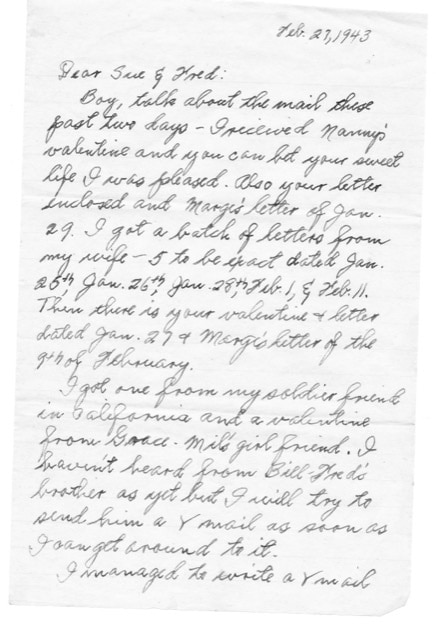 Feb. 27, 1943
Dear Sue & Fred:
Boy, talk about the mail these
past two days - I received Nanny's
valentine and you can bet your sweet
life I was pleased. Also your letter
enclosed and Margi's letter of Jan.
29. I got a batch of letters from
my wife - 5 to be exact dated Jan.
25th, Jan. 26th, Jan. 28th, Feb. 1, & Feb. 11.
Then there is your valentine & letter
dated Jan. 27 & Margi's letter of the
9th of February.
I got one from my soldier friend
in California and a valentine
from Grace - Mil's girl friend. I
haven't heard from Bill - Fred's
brother as yet but I will try to
send him a V mail as soon as
I can get around to it.
I managed to write a V mail